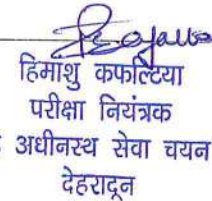 हिमांशु कफल्टिया
परीक्षा नियंत्रक
अधीनस्थ सेवा चयन
देहरादून